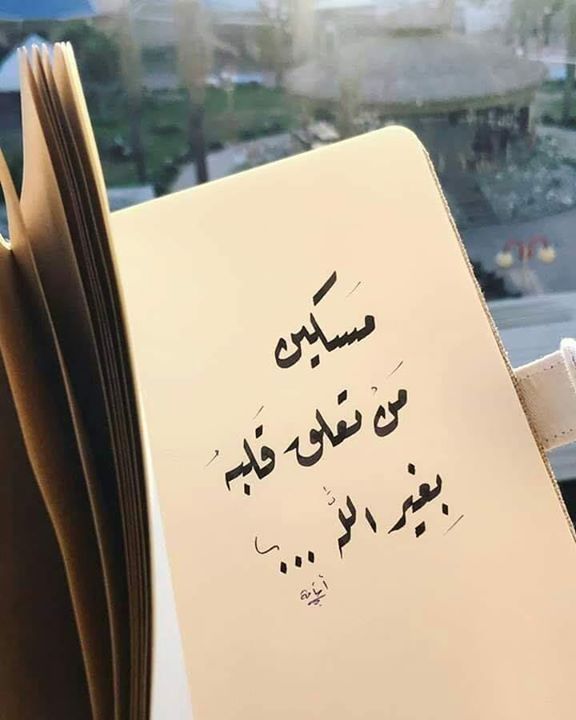 مَسكين
مَنْ تعلق قَلبهُ
بغيرِ اللّٰه ...